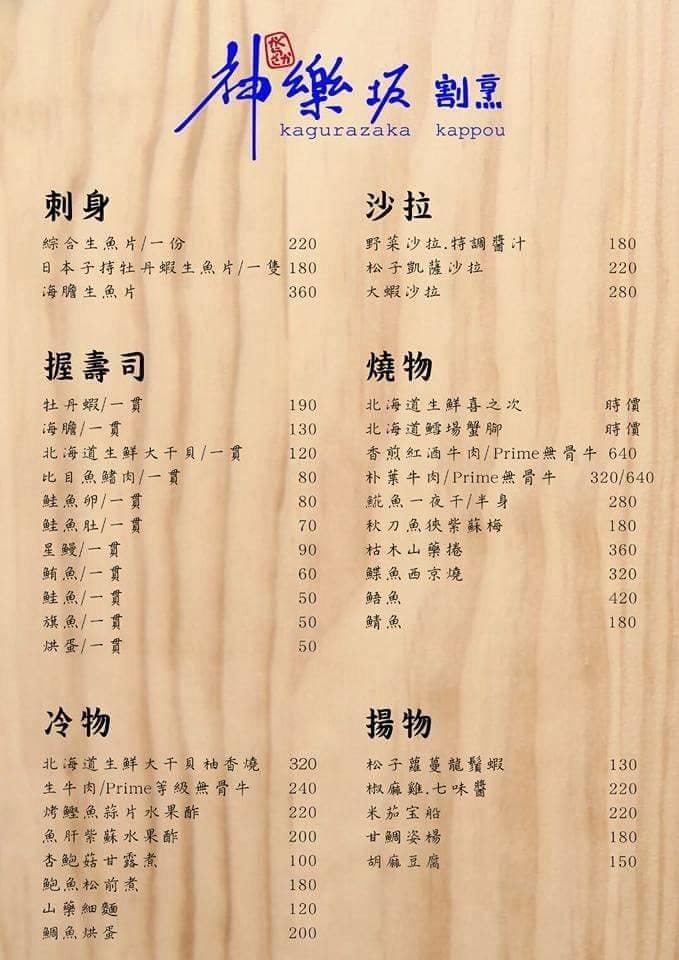 神樂坂 割烹
かぐらざか
kagurazaka kappou
刺身
綜合生魚片/一份 220
日本子持牡丹蝦生魚片/一隻 180
海膽生魚片 360
握壽司
牡丹蝦/一貫 190
海膽/一貫 130
北海道生鮮大干貝/一貫 120
比目魚鰭肉/一貫 80
鮭魚卵/一貫 80
鮭魚肚/一貫 70
星鰻/一貫 90
鮪魚/一貫 60
鮭魚/一貫 50
旗魚/一貫 50
烘蛋/一貫 50
冷物
北海道生鮮大干貝柚香燒 320
生牛肉/Prime等級無骨牛 240
烤鰹魚蒜片水果酢 220
魚肝紫蘇水果酢 200
杏鮑菇甘露煮 100
鮑魚松前煮 180
山藥細麵 120
鯛魚烘蛋 200
沙拉
野菜沙拉.特調醬汁 180
松子凱薩沙拉 220
大蝦沙拉 280
燒物
北海道生鮮喜之次 時價
北海道鱈場蟹腳 時價
香煎紅酒牛肉/Prime無骨牛 640
朴葉牛肉/Prime無骨牛 320/640
鯱魚一夜干/半身 280
秋刀魚挾紫蘇梅 180
枯木山藥捲 360
鰈魚西京燒 320
鯃魚 420
鯖魚 180
揚物
松子蘿蔓龍鬚蝦 130
椒麻雞.七味醬 220
米茄宝船 220
甘鯛姿楊 180
胡麻豆腐 150